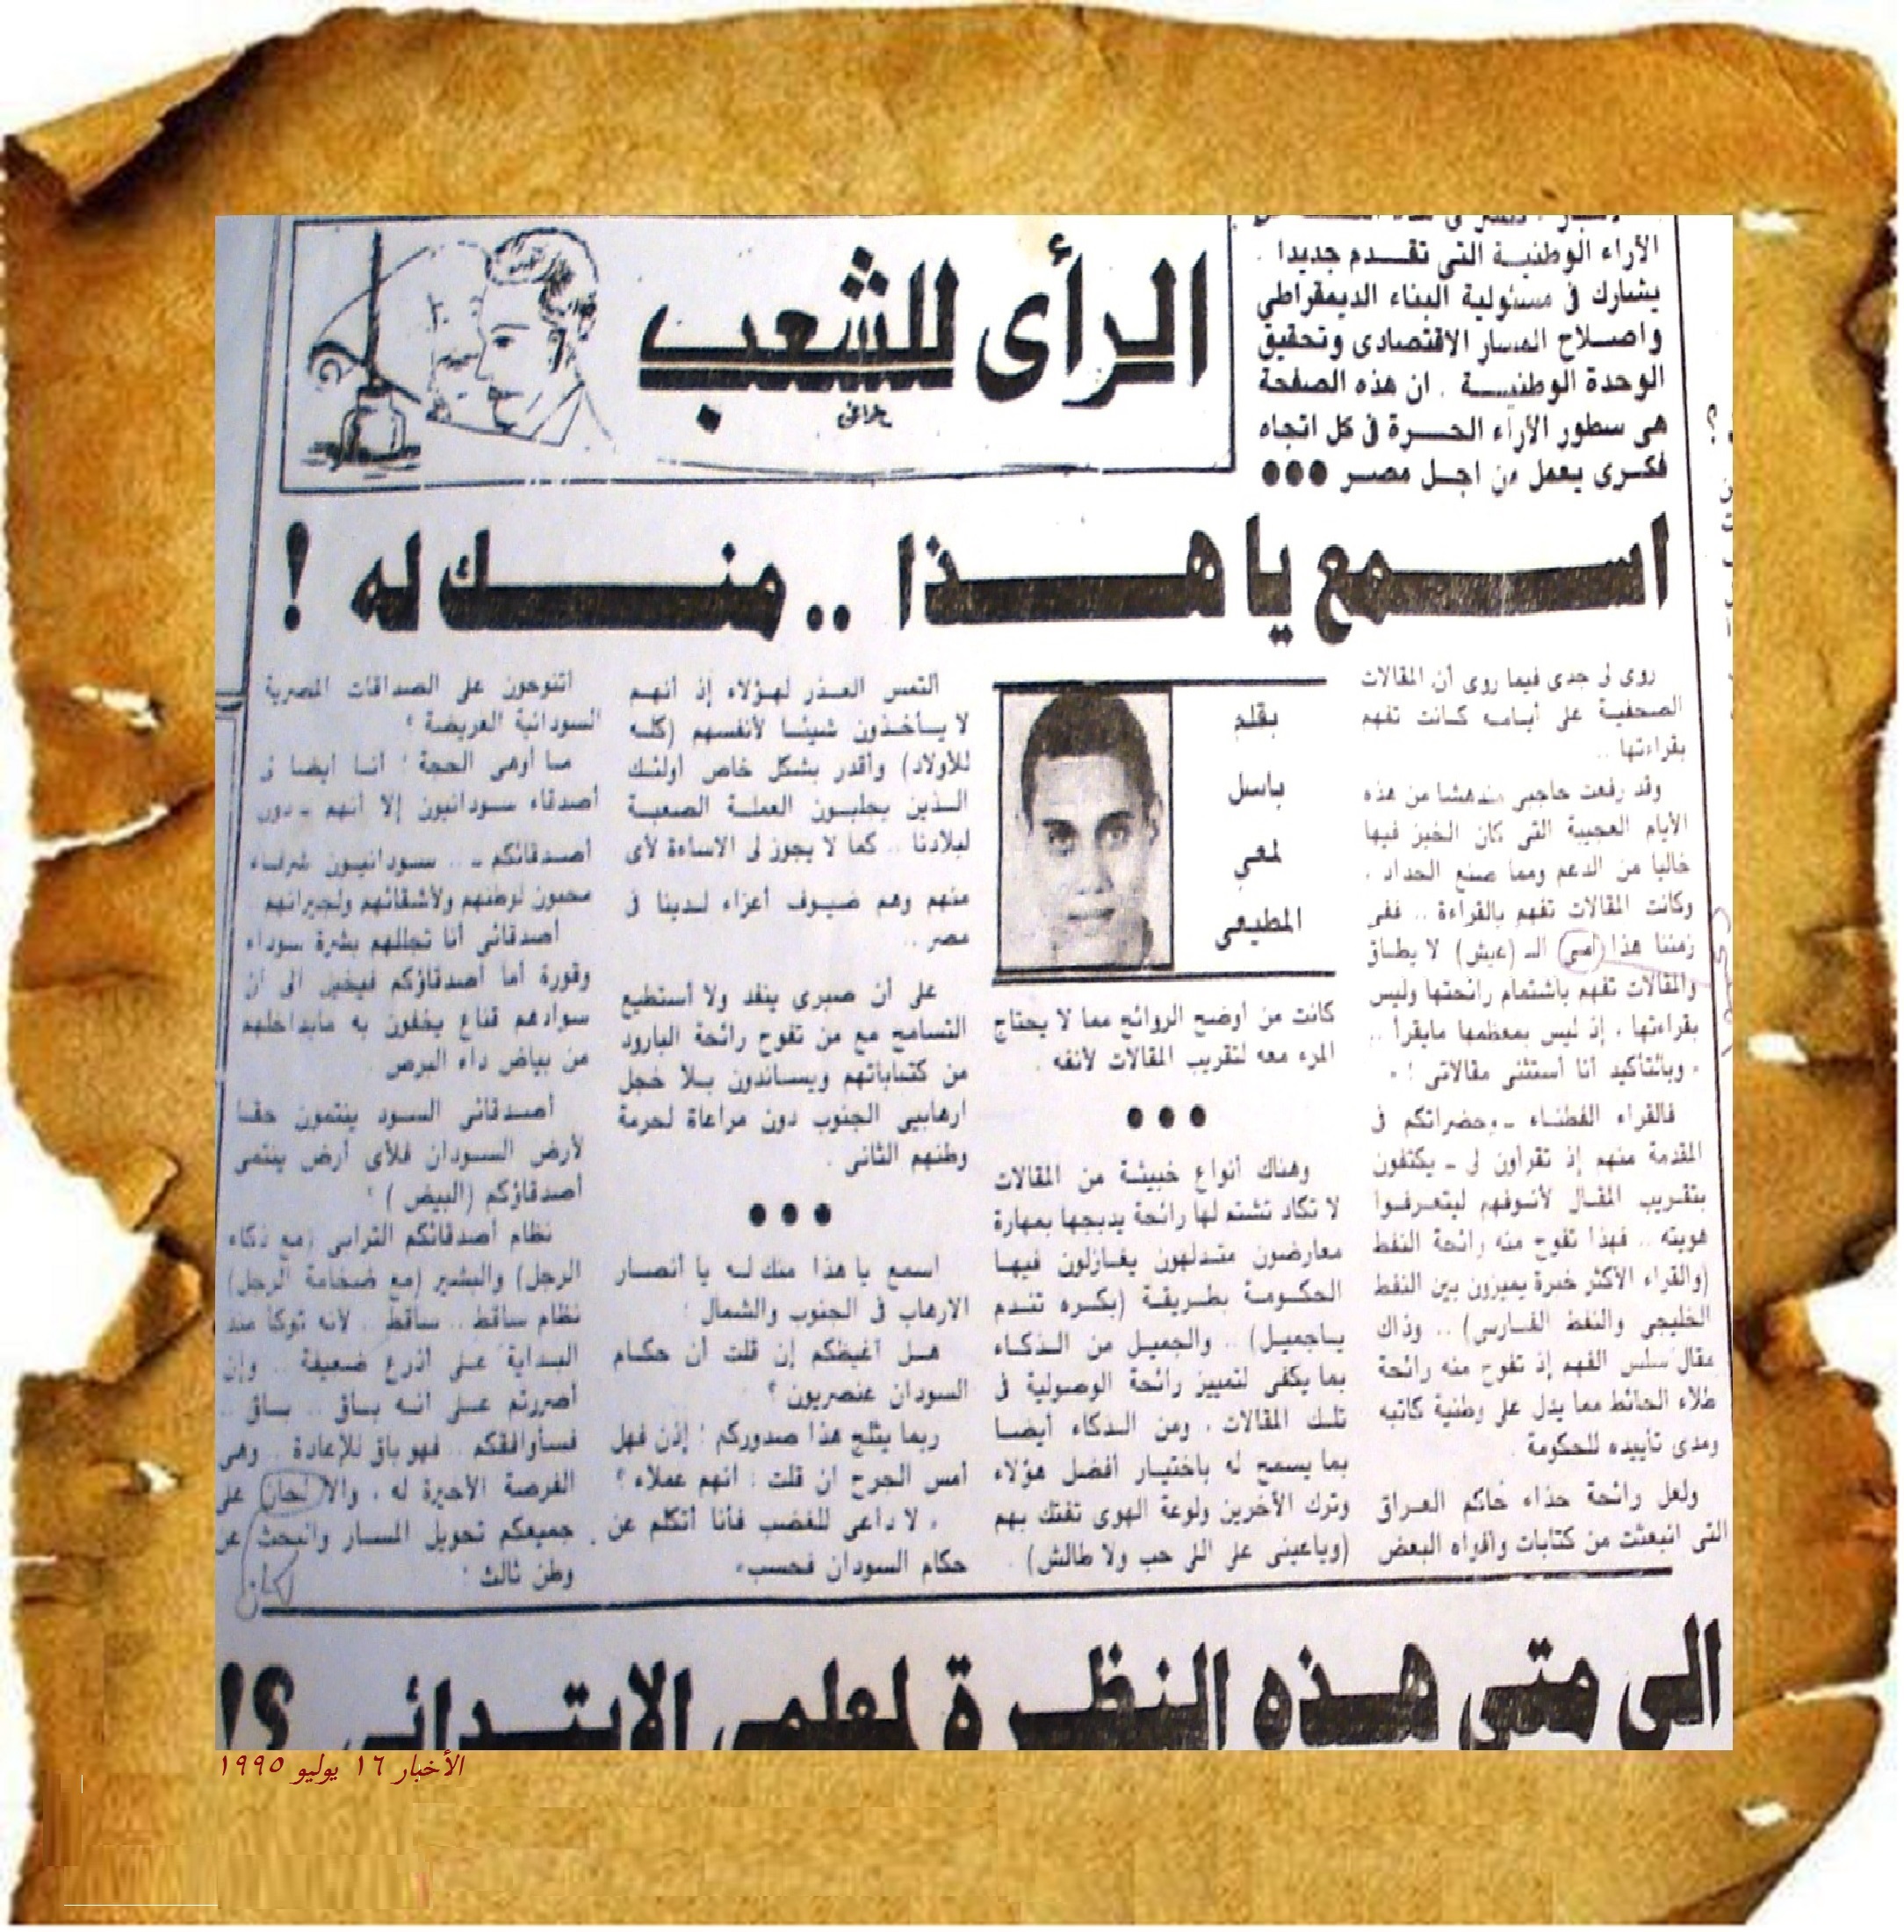 الآراء الوطنية التى تقدم جديدا .
يشارك فى مسئولية البناء الديمقراطي
واصلاح المسار الاقتصادى وتحقيق
الوحدة الوطنية . ان هذه الصفحة
هى سطور الآراء الحرة فى كل اتجاه
فكرى يعمل من اجل مصر ●●●
الرأى للشعب
اسمع يا هذا .. منك له !
روى لى جدى فيما روى أن المقالات
الصحفية على أيامه كانت تفهم
بقراءتها ..
وقد رفعت حاجبى مندهشا من هذه
الأيام العجيبة التى كان الخبز فيها
خاليا من الدعم ومما صنع الحداد ،
وكانت المقالات تفهم بالقراءة .. ففى
زمننا هذا امى الـ (عيش) لا يطاق
والمقالات تفهم باشتمام رائحتها وليس
بقراءتها ، إذ ليس بمعظمها مايقرأ ..
، وبالتأكيد أنا أستثنى مقالاتى ! ،
فالقراء الفطناء ـ وحضراتكم فى
المقدمة منهم إذ تقرأون لى ـ يكتفون
بتقريب المقال لأنوفهم ليتعرفوا
هويته .. فهذا تفوح منه رائحة النفط
(والقراء الأكثر خبرة يميزون بين النفط
الخليجى والنفط الفارسى) .. وذاك
مقال سلس الفهم إذ تفوح منه رائحة
طلاء الحائط مما يدل على وطنية كاتبه
ومدى تأييده للحكومة .
ولعل رائحة حذاء حاكم العراق
التى انبعثت من كتابات وأفواه البعض
بقلم
باسل
لمعي
المطيعى
كانت من أوضح الروائح مما لا يحتاج
المرء معه لتقريب المقالات لأنفه .
●●●
وهناك أنواع خبيثة من المقالات
لا تكاد تشتم لها رائحة يدبجها بمهارة
معارضون متدلهون يغازلون فيها
الحكومة بطريقة (بكره تندم
ياجميل) .. والجميل من الذكاء
بما يكفى لتمييز رائحة الوصولية فى
تلك المقالات ، ومن الذكاء أيضا
بما يسمح له باختيار أفضل هؤلاء
وترك الآخرين ولوعة الهوى تفتك بهم
(وياعينى على اللى حب ولا طالش) .
التمس العذر لهؤلاء إذ أنهم
لا يأخذون شيئا لأنفسهم (كله
للأولاد) وأقدر بشكل خاص أولئك
الذين يجلبون العملة الصعبة
لبلادنا .. كما لا يجوز لى الاساءة لأى
منهم وهم ضيوف أعزاء لدينا فى
مصر ..
على أن صبرى ينفد ولا أستطيع
التسامح مع من تفوح رائحة البارود
من كتاباتهم ويساندون بلا خجل
ارهابيى الجنوب دون مراعاة لحرمة
وطنهم الثانى .
●●●
اسمع يا هذا منك له يا أنصار
الارهاب فى الجنوب والشمال :
هل أغيظكم إن قلت أن حكام
السودان عنصريون ؟
ربما يثلج هذا صدوركم ! إذن فهل
أمس الجرح ان قلت : انهم عملاء ؟
، لا داعى للغضب فأنا أتكلم عن
حكام السودان فحسب،
اتنوحون على الصداقات المصرية
السودانية العريضة ؟
ما أوهى الحجة ! أنا أيضا لى
أصدقاء سودانيون إلا أنهم ـ دون
أصدقائكم ـ .. سودانيون شرفاء
محبون لوطنهم ولأشقائهم ولجيرانهم
أصدقائى أنا تجللهم بشرة سوداء
وقورة أما أصدقاؤكم فيخيل الى أن
سوادهم قناع يخفون به مابداخلهم
من بياض داء البرص .
أصدقائى السود ينتمون حقا
لأرض السودان فلأى أرض ينتمى
أصدقاؤكم (البيض) ؟
نظام أصدقائكم الترابى (مع ذكاء
الرجل) والبشير (مع ضخامة الرجل)
نظام ساقط .. ساقط .. لأنه توكأ منذ
البداية على أذرع ضعيفة .. وإن
أصررتم على انه باق .. باق ..
فسأوافقكم .. فهو باق للإعادة .. وهى
الفرصة الأخيرة له ، والا لحان على
جميعكم تحويل المسار والبحث عن
وطن ثالث !
لكان
الى متى هذه النظرة لمعلمى الابتدائى ؟!
الأخبار ١٦ يوليو ١٩٩٥